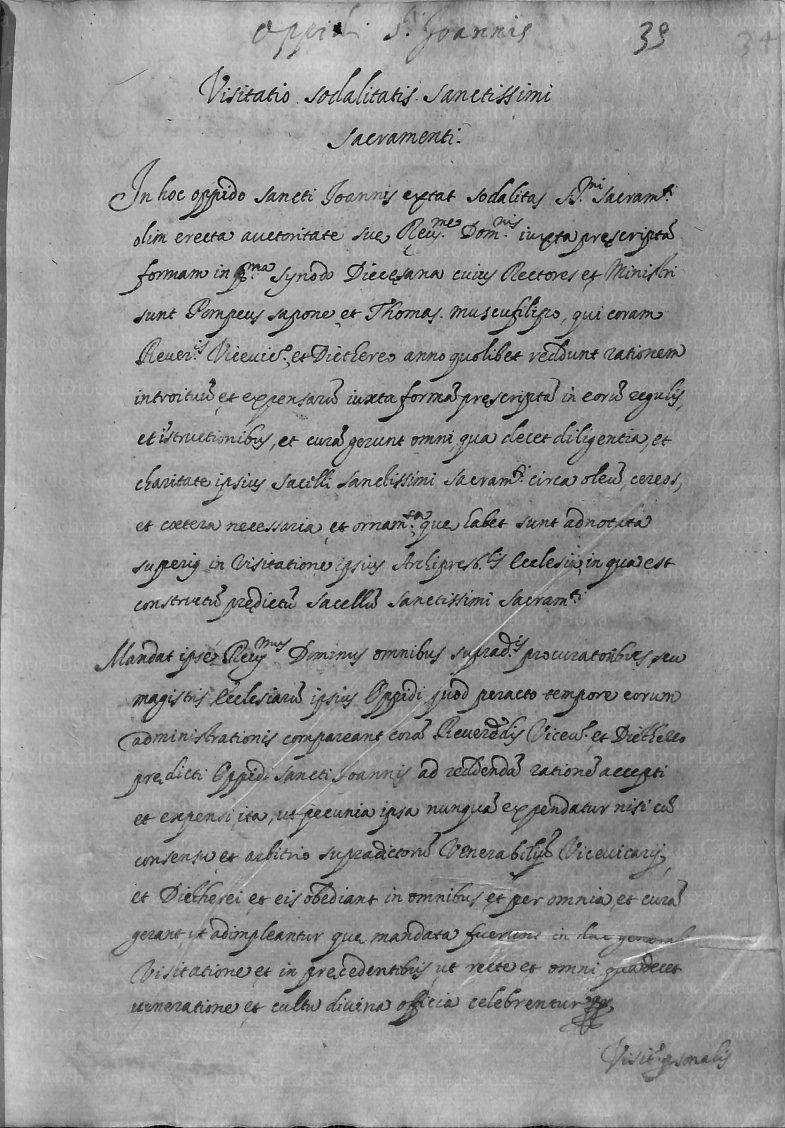 Oppidi S.ti Joannis 39
34
Visitatio sodalitatis sanctissimi
sacramenti.
In hoc oppido sancti Joannis extat sodalitas S.mi sacram.ti
olim erecta auctoritate sue Reu.me Dom.nis iuxta prescriptā
formam in p.ma synodo Diecesana cuius Rectores et Ministri
sunt Pompeus sapone et Thomas muscufilipo, qui coram
Reuer.is Viceuic.o et Diethereo anno quolibet reddunt rationem
introituū et expensarū iuxta formā prescriptā in eorū regulis,
et īstructionibus, et curā gerunt omni, qua decet diligentia, et
charitate ipsius sacelli sanctissimi sacram.ti circa oleū, cereos,
et cætera necessaria, et ornam.ta que habet sunt adnotata
superius in visitatione ipsius Archipresb.lis Ecclesiæ, in qua est
constructū predictū sacellū sanctissimi sacram.ti
Mandat ipse Reu.mus Dominus omnibus suprad.is procuratoribus, seu
magistris Ecclesiarū ipsius Oppidi quod peracto tempore eorum
administrationis compareant corā Reuerēdis Viceu.o et Diethereo
predicti Oppidi sancti Joannis ad reddendā rationē accepti
et expensi ita, ut pecunia ipsa nunquā expendatur nisi cū
consensu et arbitrio supradictorū Venerabiliū Viceuicarij,
et Dietherei et eis obediant in omnibus et per omnia, et curā
gerant ut adimpleantur que mandata fuerunt in hac generali
Visitatione et in precedentibus, ut recte et omni, qua decet
ueneratione et cultu diuina officia celebrentur
Visit.o psonalis